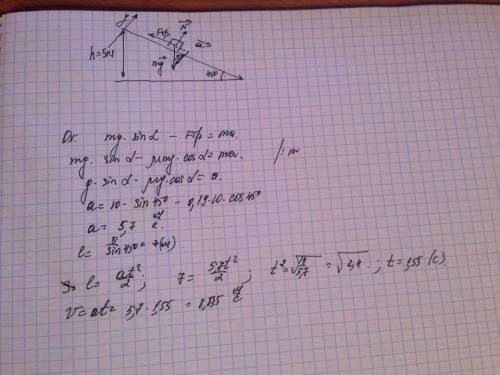 y
Fтр N
h=5м a
mg
45°
Ox: mg·sinα − Fтр = ma.
mg·sinα − μmg·cosα = ma. /:m
g·sinα − μg·cosα = a.
a = 10·sin45° − 0,19·10·cos45°
a = 5,7 м/с²
l = 5/sin45° = 7(м)
l = at²/2; 7 = 5,7t²/2; t² = √14/5,7 = √2,4.; t = 1,55 (с)
V = at = 5,7·1,55 = 8,835 м/с